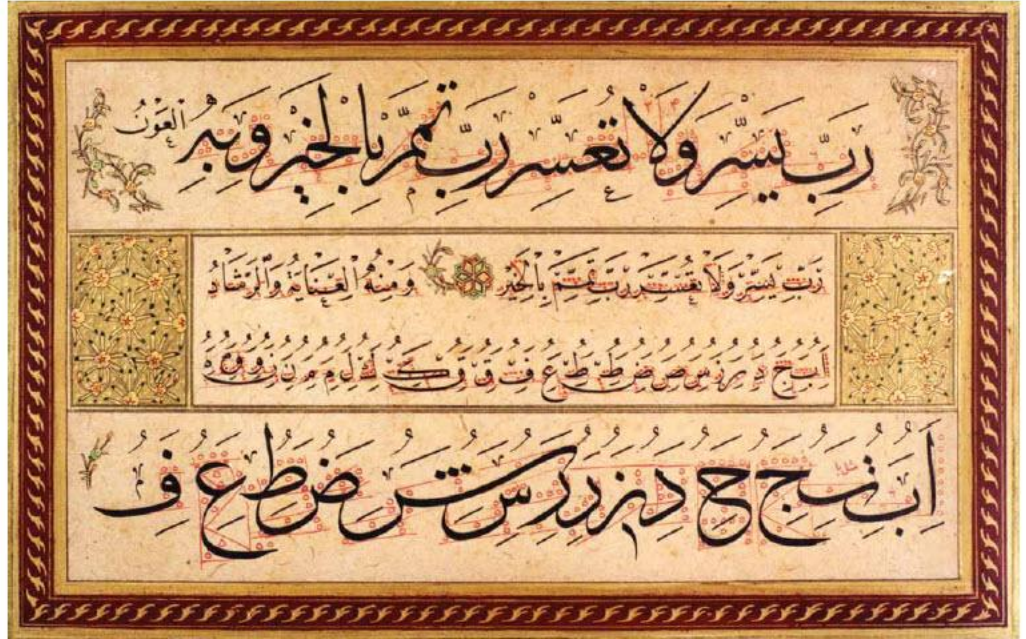 رَبِّ يَسِّرْ وَلَا تُعَسِّرْ رَبِّ تَمِّمْ بِالْخَيْرِ وَبِهِ الْعَوْنُ
رَبِّ يَسِّرْ وَلَا تُعَسِّرْ رَبِّ تَمِّمْ بِالْخَيْرِ وَمِنْهُ الْعِنَايَةُ وَالرَّشَادُ
ا ب ج د ر ز س ص ض ط ع ف ق ك ل م ن و ه
ا ب ج ح د ر س ض ط ع ف